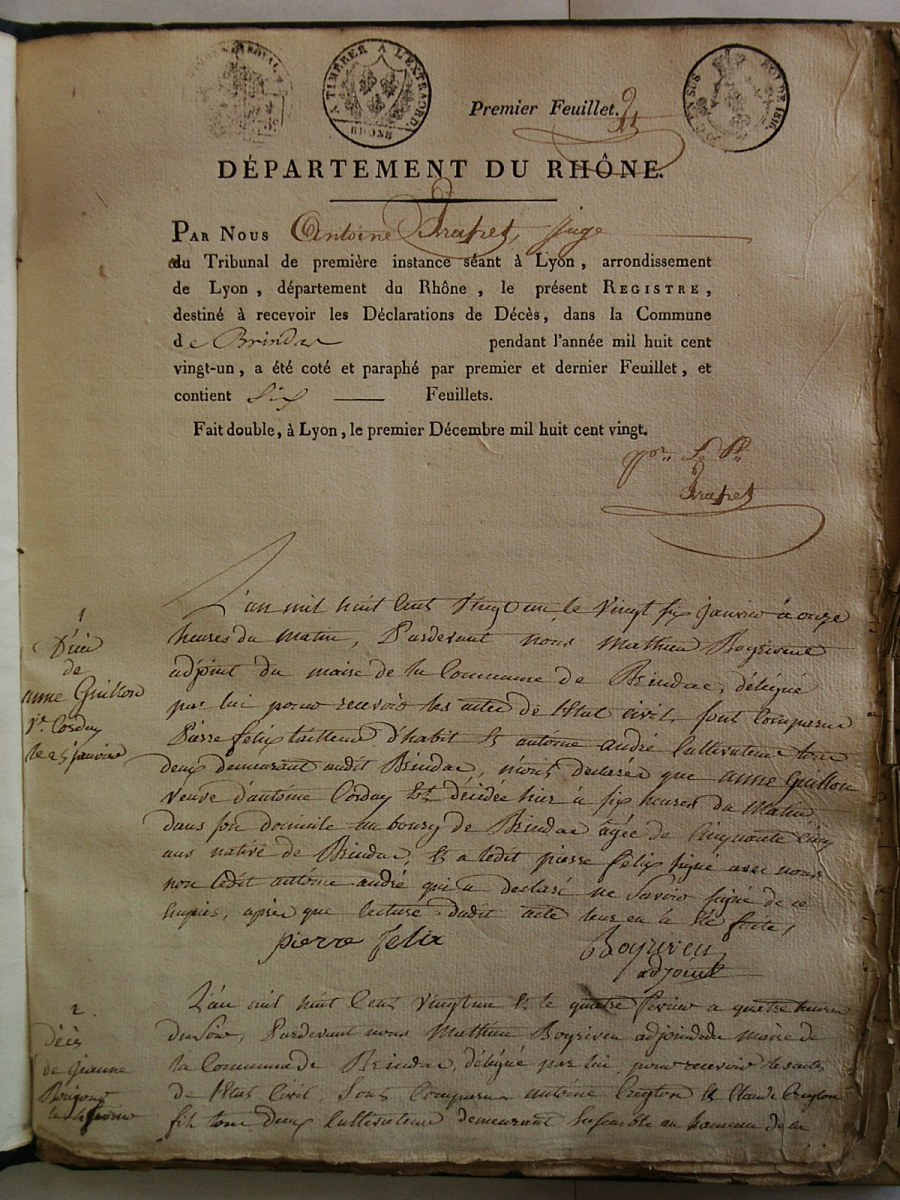 A TIMBRER A L'EXTRAORD.
RHONE
LOI DE 1816
Premier Feuillet.
DÉPARTEMENT DU RHÔNE.
PAR NOUS Antoine juge
du Tribunal de première instance séant à Lyon, arrondissement
de Lyon, département du Rhône, le présent REGISTRE,
destiné à recevoir les Déclarations de Décès, dans la Commune
de Brindas pendant l'année mil huit cent
vingt-un, a été coté et paraphé par premier et dernier Feuillet, et
contient Six Feuillets.
Fait double, à Lyon, le premier Décembre mil huit cent vingt.
1
Décès
de
anne Guillon
Ve Corday
le 25 janvier
L'an mil huit cent vingt un le vingt six janvier à onze
heures du matin, Pardevant nous Mathieu Boyriven
adjoint du maire de la Commune de Brindas, délégué
par lui pour recevoir les actes de l'état civil, sont comparus
Pierre felix tailleur d'habit et antoine andré cultivateur tous
deux demeurant audit Brindas, n'ous declarée que anne Guillon
veuve d'antoine Corday est décédée hier à six heures du matin
dans son domicile au bourg de Brindas agée de cinquante cinq
ans native de Brindas, et a ledit pierre felix signé avec nous
non ledit antoine andré qui a declaré ne savoir signé de ce
enquis, après que lecture dudit acte leur en a été faite,
pierre felix Boyriven
adjoint
2
décès
de jeanne
le 4 fevrier
L'an mil huit cent vingt un et le quatre fevrier a quatre heures
du soir, Pardevant nous Mathieu Boyriven adjoindedu maire de
la Commune de Brindas, délégué par lui pour recevoir les actes
de l'état Civil, Sont Comparus antoine et Claude
fils tous deux cultivateurs demeurant ensemble au hameau de la